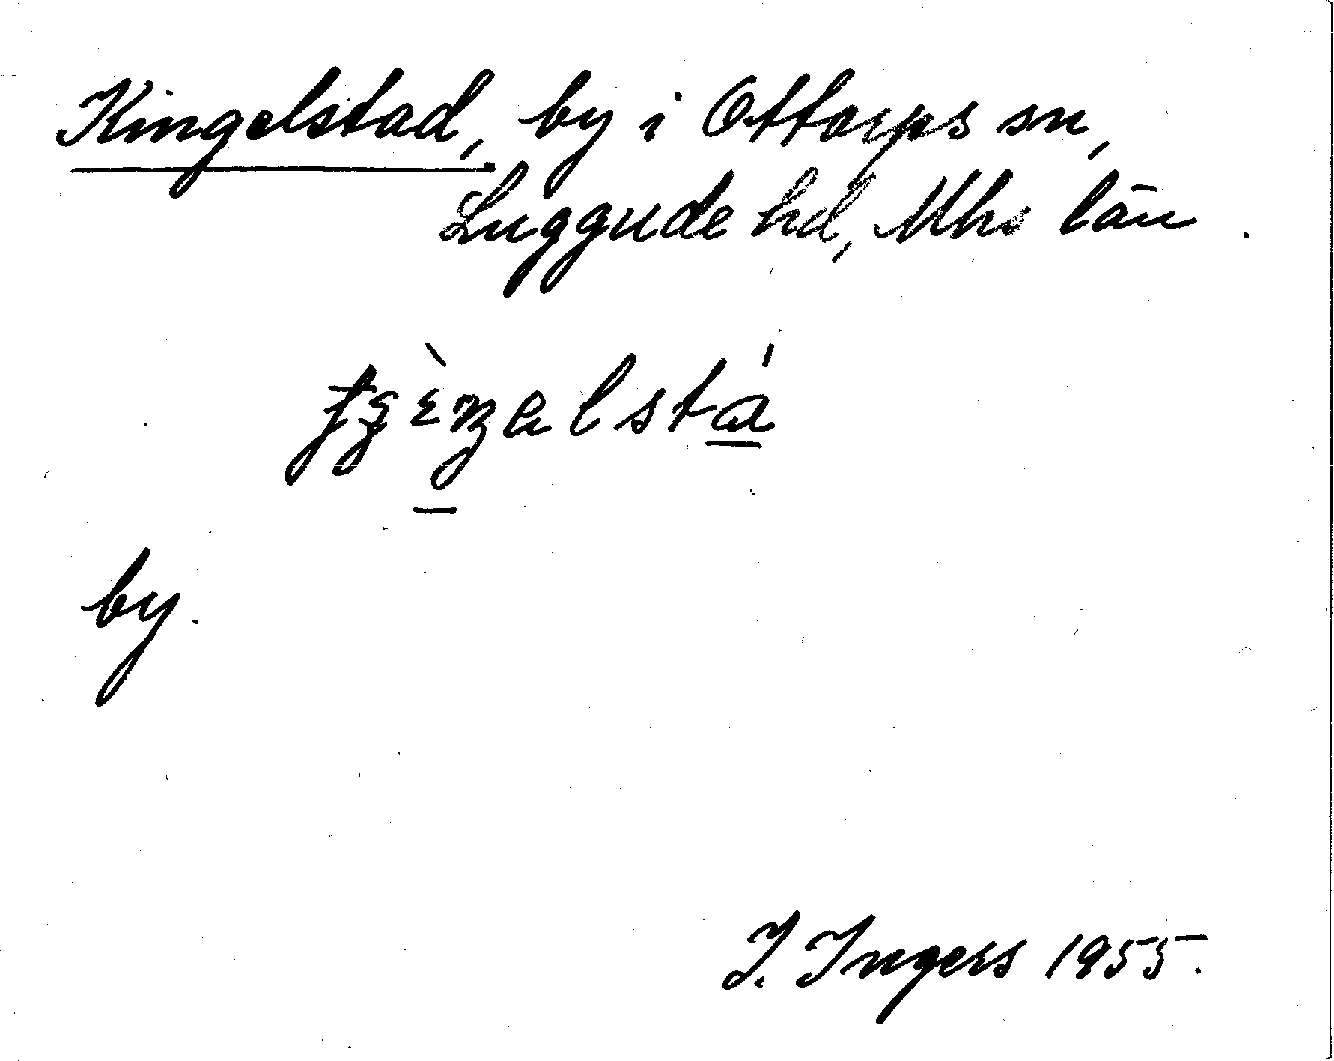 Kingelstad, by i Ottarps sn,
Luggude hd, Mhs län.
by.
I. Ingers 1955.